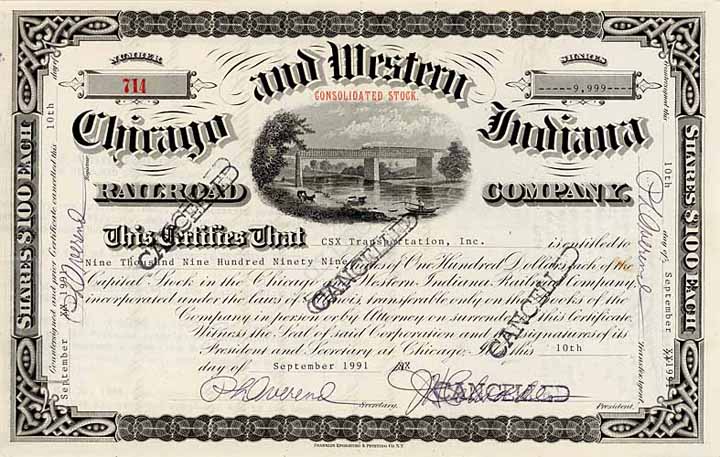 NUMBER
714
SHARES
-----9,999-----
Chicago and Western Indiana
CONSOLIDATED STOCK.
RAILROAD COMPANY.
This Certifies That CSX Transportation, Inc. is entitled to
Nine Thousand Nine Hundred Ninety Nine of One Hundred Dollars each of the
Capital Stock in the Chicago Western Indiana Company,
incorporated under the laws of transferable only on the Books of the
Company in person or by Attorney on surrender of this Certificate.
Witness the Seal of said Corporation and the signatures of its
President and Secretary at Chicago, this 10th
day of September 1991
Secretary. President.
CANCELLED
CANCELLED
CANCELLED
CANCELLED
SHARES $100 EACH
SHARES $100 EACH
Countersigned and prior Certificate cancelled this 10th
day of September 1991
Registrar
Countersigned this 10th
day of September 1991
Transfer Agent.
FRANKLIN ENGRAVING & PRINTING CO. N.Y.